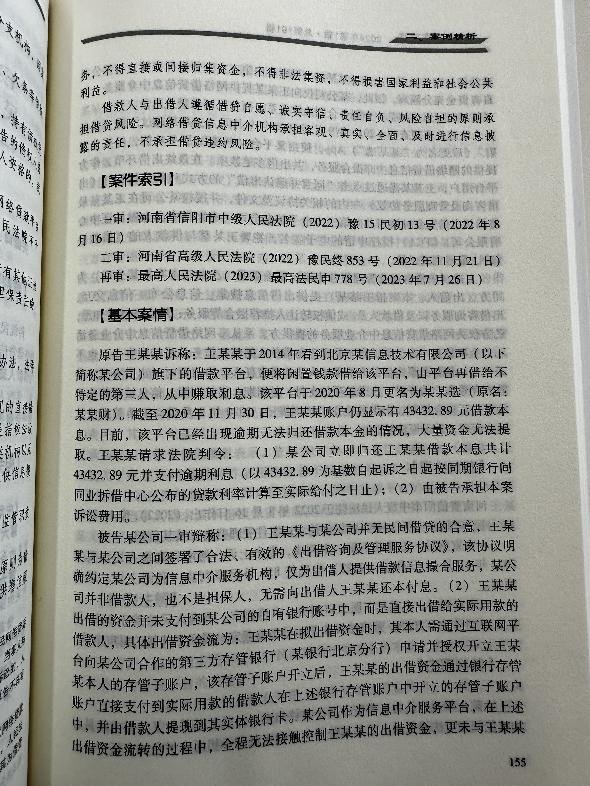 2024年第1辑·总第191辑
二、案例精析
务，不得直接或间接归集资金，不得非法集资，不得损害国家利益和社会公共
利益。
借款人与出借人遵循借贷自愿、诚实守信、责任自负、风险自担的原则承
担借贷风险。网络借贷信息中介机构承担客观、真实、全面、及时进行信息披
露的责任，不承担借贷违约风险。
【案件索引】
一审：河南省信阳市中级人民法院（2022）豫15民初13号（2022年8
月16日）
二审：河南省高级人民法院（2022）豫民终853号（2022年11月21日）
再审：最高人民法院（2023）最高法民申778号（2023年7月26日）
【基本案情】
原告王某某诉称：王某某于2014年看到北京某信息技术有限公司（以下
简称某公司）旗下的借款平台，便将闲置钱款借给该平台，由平台再借给不
特定的第三人，从中赚取利息。该平台于2020年8月更名为某某选（原名：
某某财）。截至2020年11月30日，王某某账户仍显示有43432.89元借款本
息。目前，该平台已经出现逾期无法归还借款本金的情况，大量资金无法提
取。王某某请求法院判令：（1）某公司立即归还王某某借款本息共计
43432.89元并支付逾期利息（以43432.89为基数自起诉之日起按同期银行间
同业拆借中心公布的贷款利率计算至实际给付之日止）；（2）由被告承担本案
诉讼费用。
被告某公司一审辩称：（1）王某某与某公司并无民间借贷的合意，王某
某与某公司之间签署了合法、有效的《出借咨询及管理服务协议》，该协议明
确约定某公司为信息中介服务机构，仅为出借人提供借款信息撮合服务，某公
司并非借款人，也不是担保人，无需向出借人王某某还本付息。（2）王某某
出借的资金并未支付到某公司的自有银行账号中，而是直接出借给实际用款的
借款人，具体出借资金流为：王某某在拟出借资金时，其本人需通过互联网平
台向某公司合作的第三方存管银行（某银行北京分行）申请并授权开立王某
某本人的存管子账户，该存管子账户开立后，王某某的出借资金通过银行存管
账户直接支付到实际用款的借款人在上述银行存管账户中开立的存管子账户
中，并由借款人提现到其实体银行卡。某公司作为信息中介服务平台，在上述
出借资金流转的过程中，全程无法接触控制王某某的出借资金，更未与王某某
155